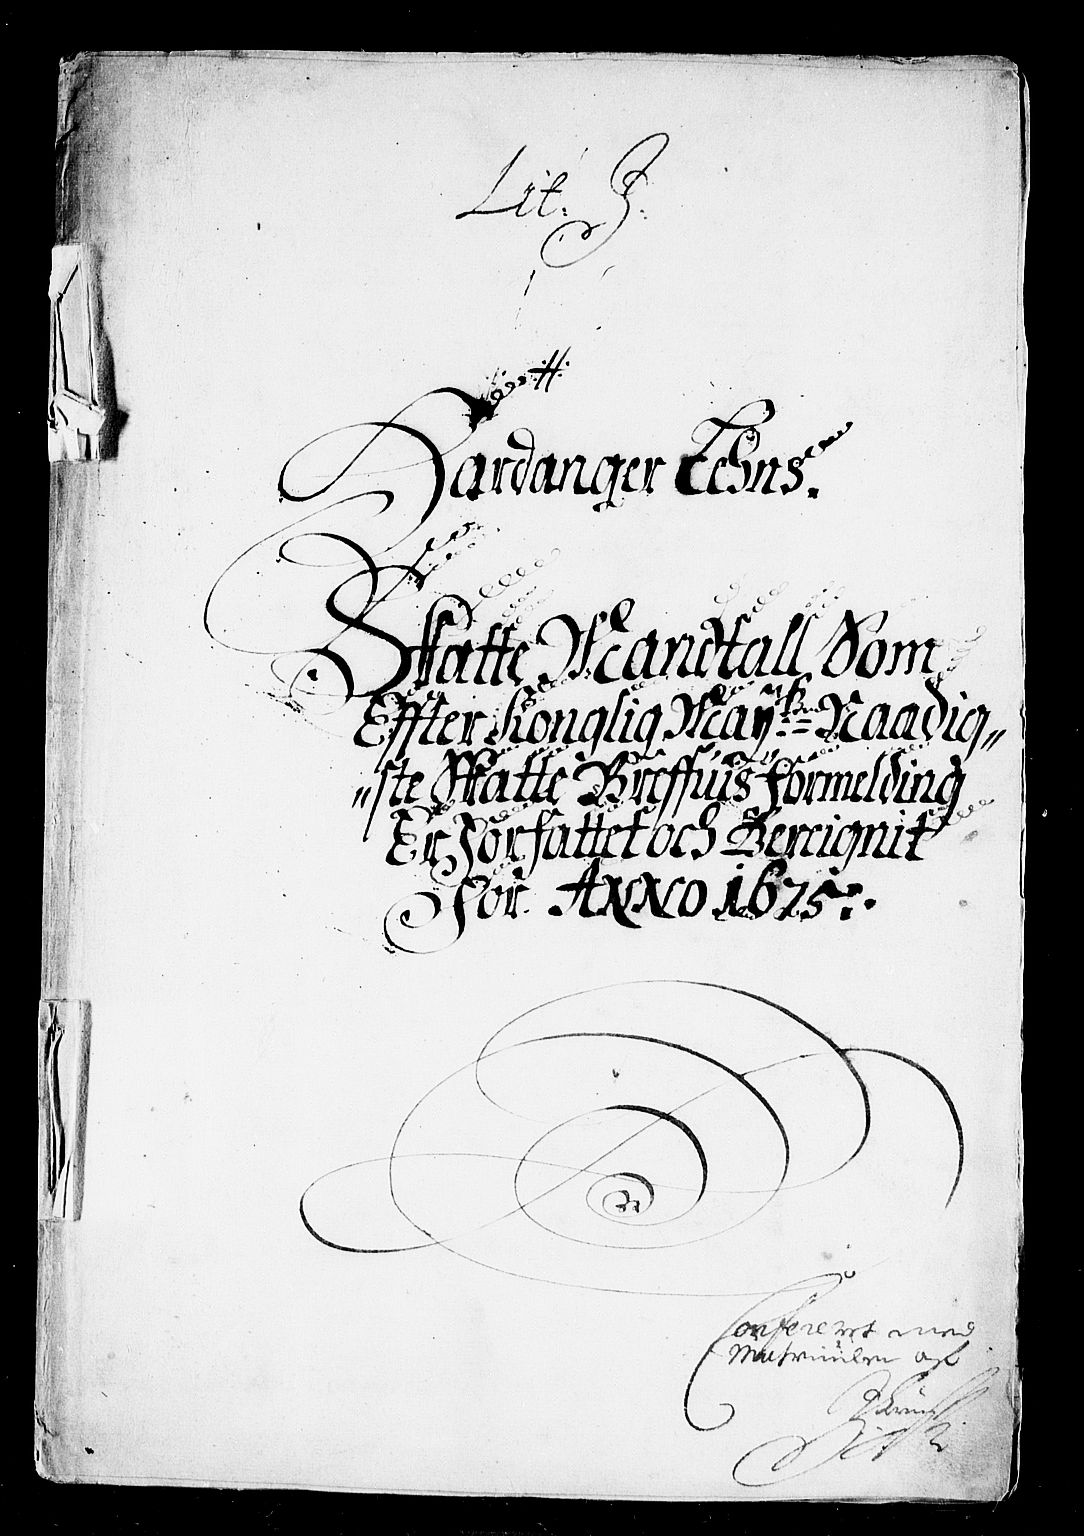 Lit: J:
Hardanger Lehns.
Skatte Mandtall Som
Effter Konglig May:ts Naadig„
„ste Skatte Breffuis formelding
Er Forfattet och Bereignit
For. ANNO 1675:.
Confererit med
Matriculen af